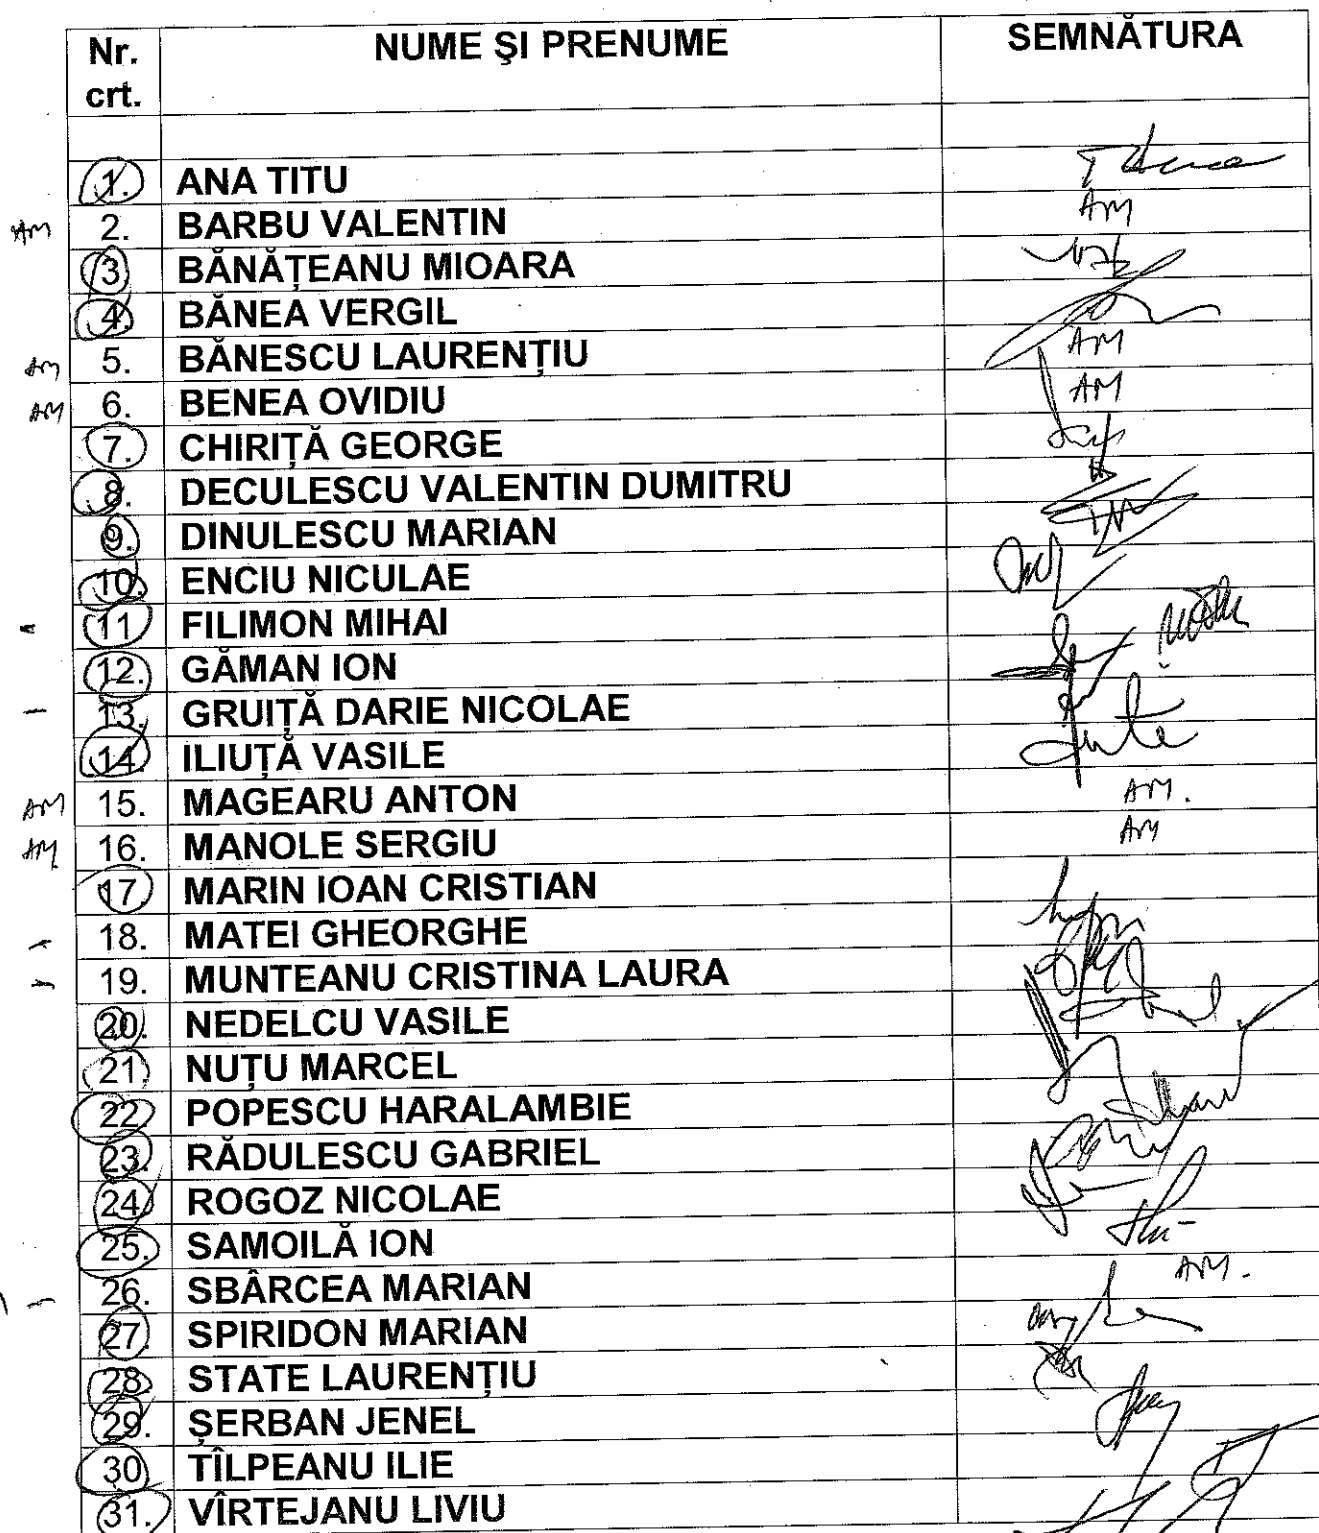 Nr. crt. NUME ŞI PRENUME SEMNĂTURA
1. ANA TITU
AM 2. BARBU VALENTIN AM
3 BĂNĂŢEANU MIOARA
4. BĂNEA VERGIL
AM 5. BĂNESCU LAURENŢIU AM
AM 6. BENEA OVIDIU AM
7. CHIRIŢĂ GEORGE
8. DECULESCU VALENTIN DUMITRU
9. DINULESCU MARIAN
10. ENCIU NICULAE
11 FILIMON MIHAI
12. GĂMAN ION
13. GRUIŢĂ DARIE NICOLAE
14. ILIUŢĂ VASILE
AM 15. MAGEARU ANTON AM.
AM 16. MANOLE SERGIU AM
17 MARIN IOAN CRISTIAN
18. MATEI GHEORGHE
19. MUNTEANU CRISTINA LAURA
20. NEDELCU VASILE
21. NUŢU MARCEL
22 POPESCU HARALAMBIE
23. RĂDULESCU GABRIEL
24. ROGOZ NICOLAE
25. SAMOILĂ ION
26. SBÂRCEA MARIAN AM.
27. SPIRIDON MARIAN
28 STATE LAURENŢIU
29. ŞERBAN JENEL
30 TÎLPEANU ILIE
31. VÎRTEJANU LIVIU